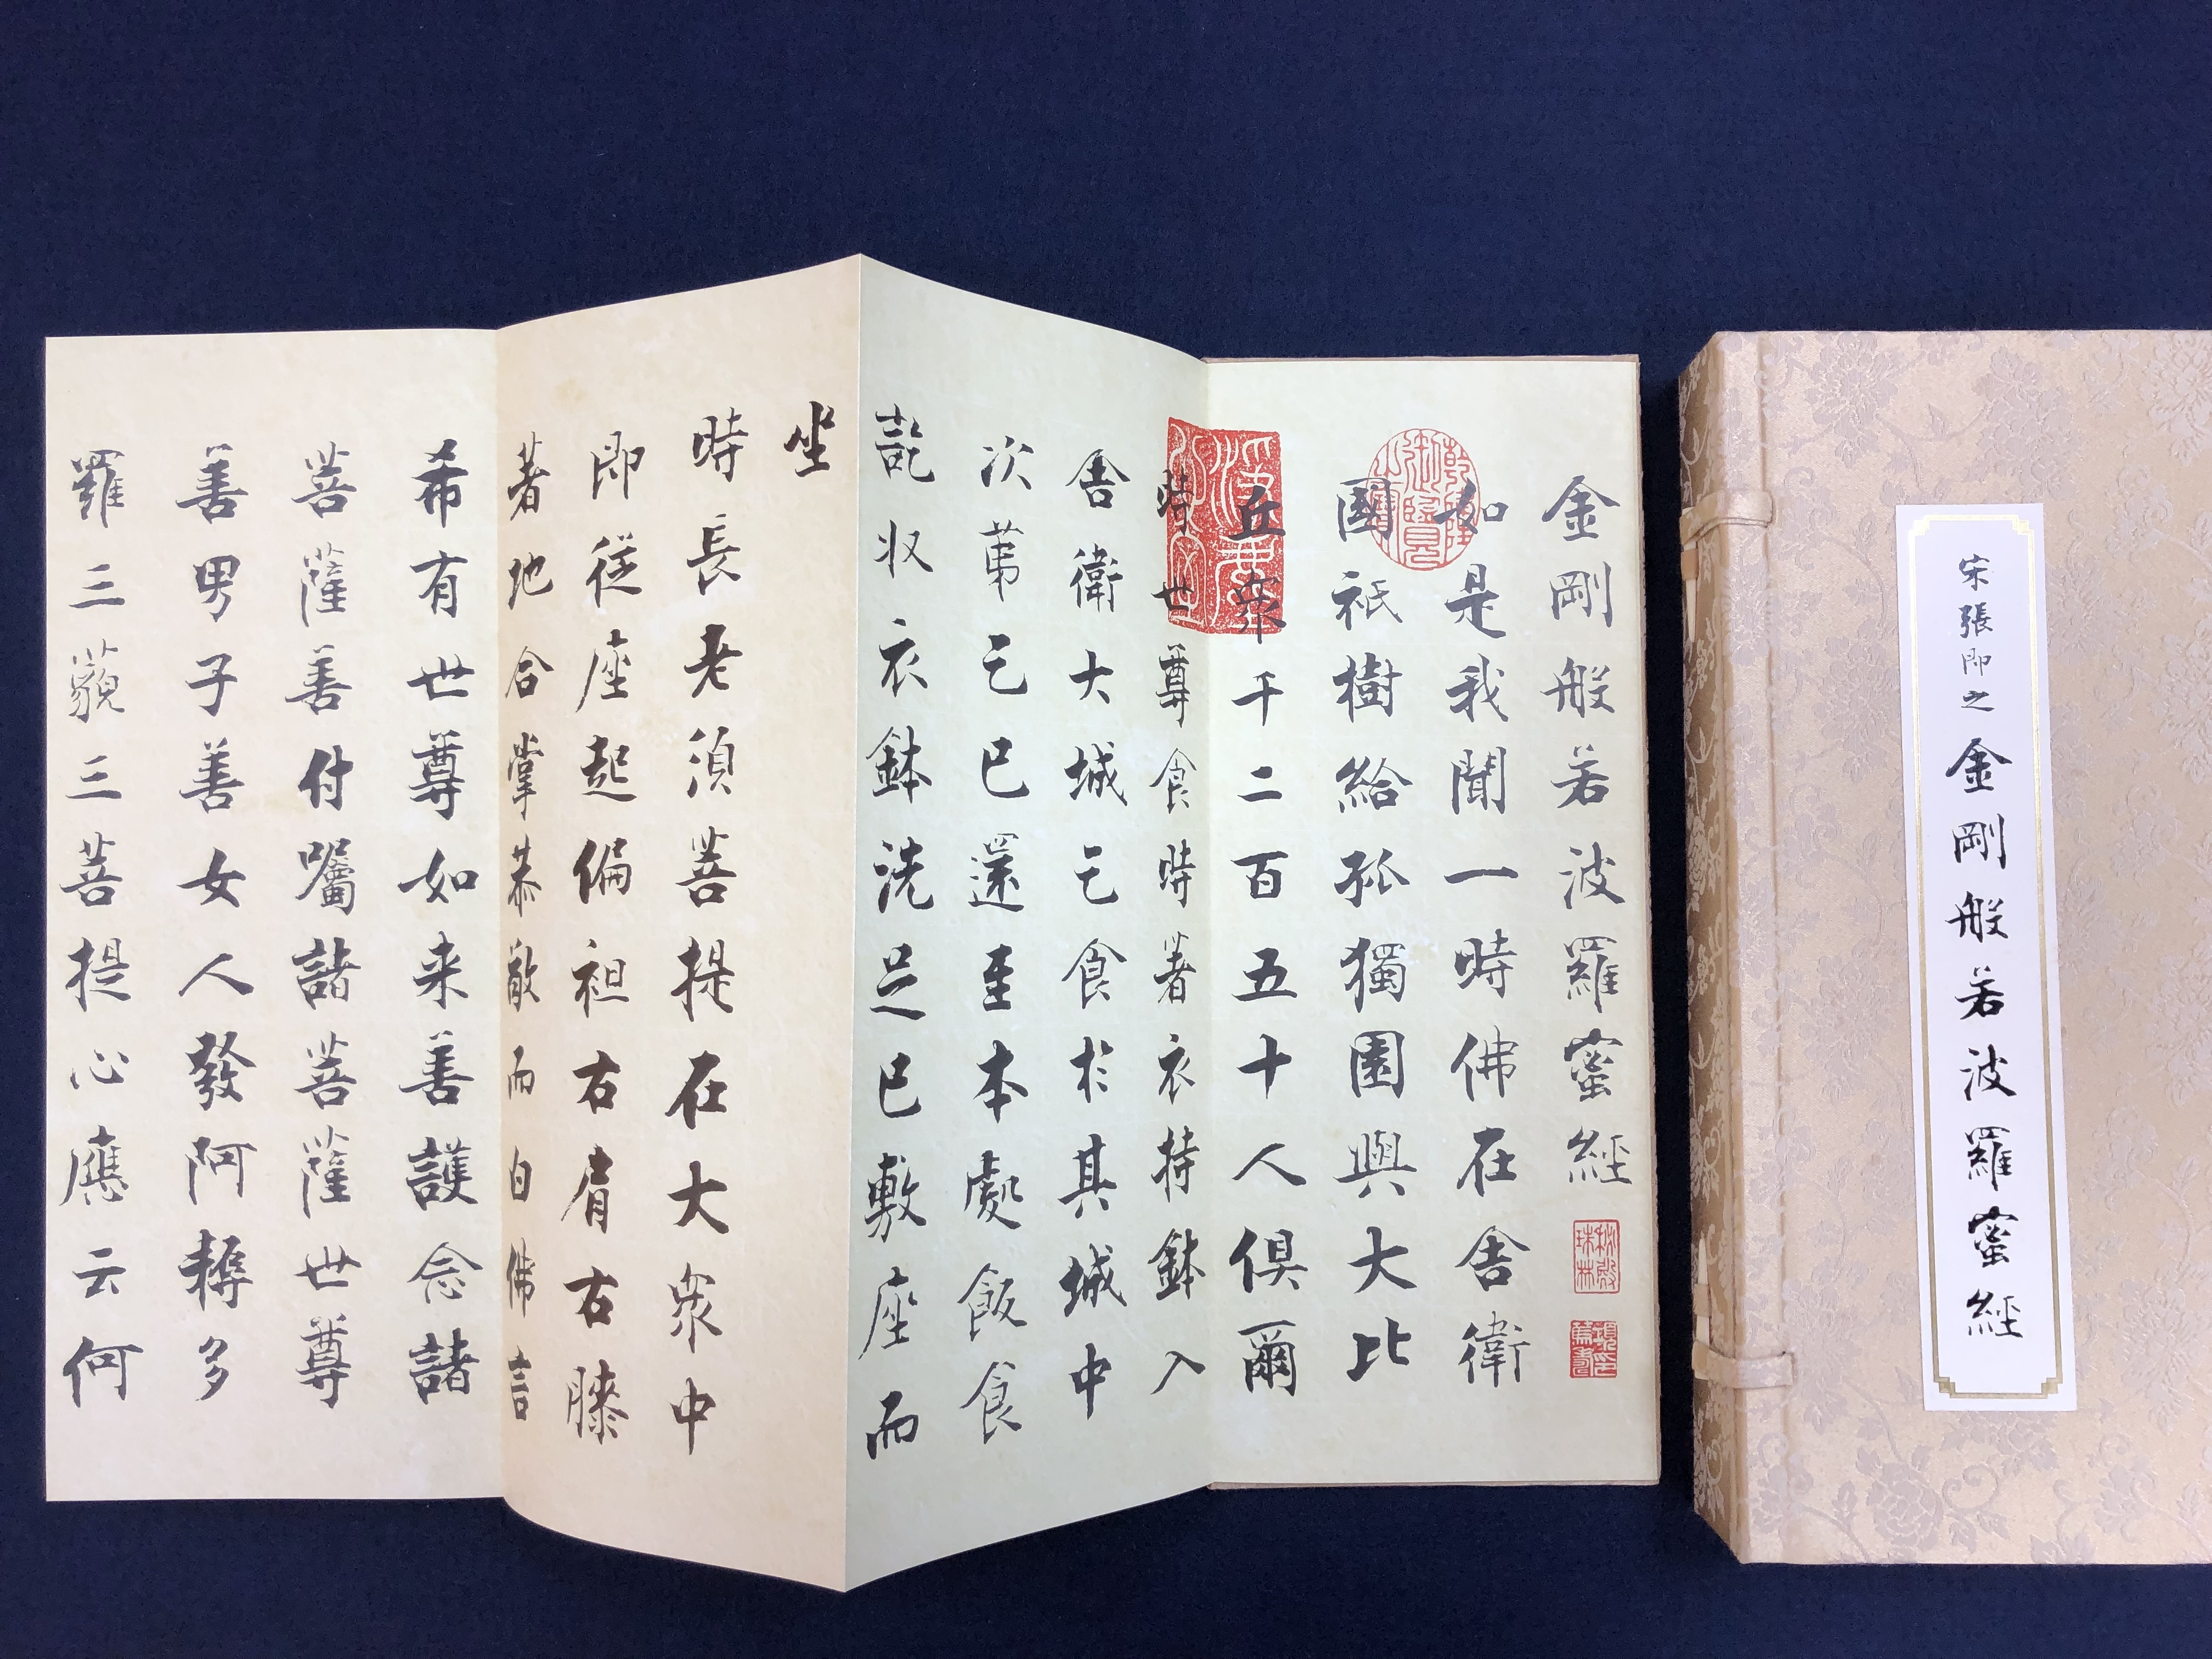 宋張即之金剛般若波羅蜜經
金剛般若波羅蜜經
如是我聞一時佛在舍衛
國祇樹給孤獨園與大比
丘衆千二百五十人俱爾
時世尊食時著衣持鉢入
舍衛大城乞食於其城中
次苐乞已還至本處飯食
訖収衣鉢洗足已敷座而
坐
時長老湏菩提在大衆中
即從座起偏袒右肩右膝
著地合掌恭敬而白佛言
希有世尊如来善護念諸
菩薩善付囑諸菩薩世尊
善男子善女人發阿耨多
羅三藐三菩提心應云何
乾隆御覽之寶
秋殿珠林